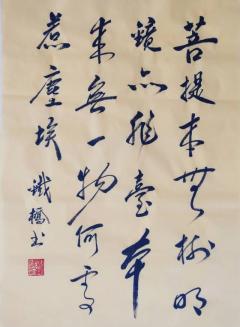 菩提本無樹明
鏡亦非臺本
来無一物何處
惹塵埃
鐵橋书